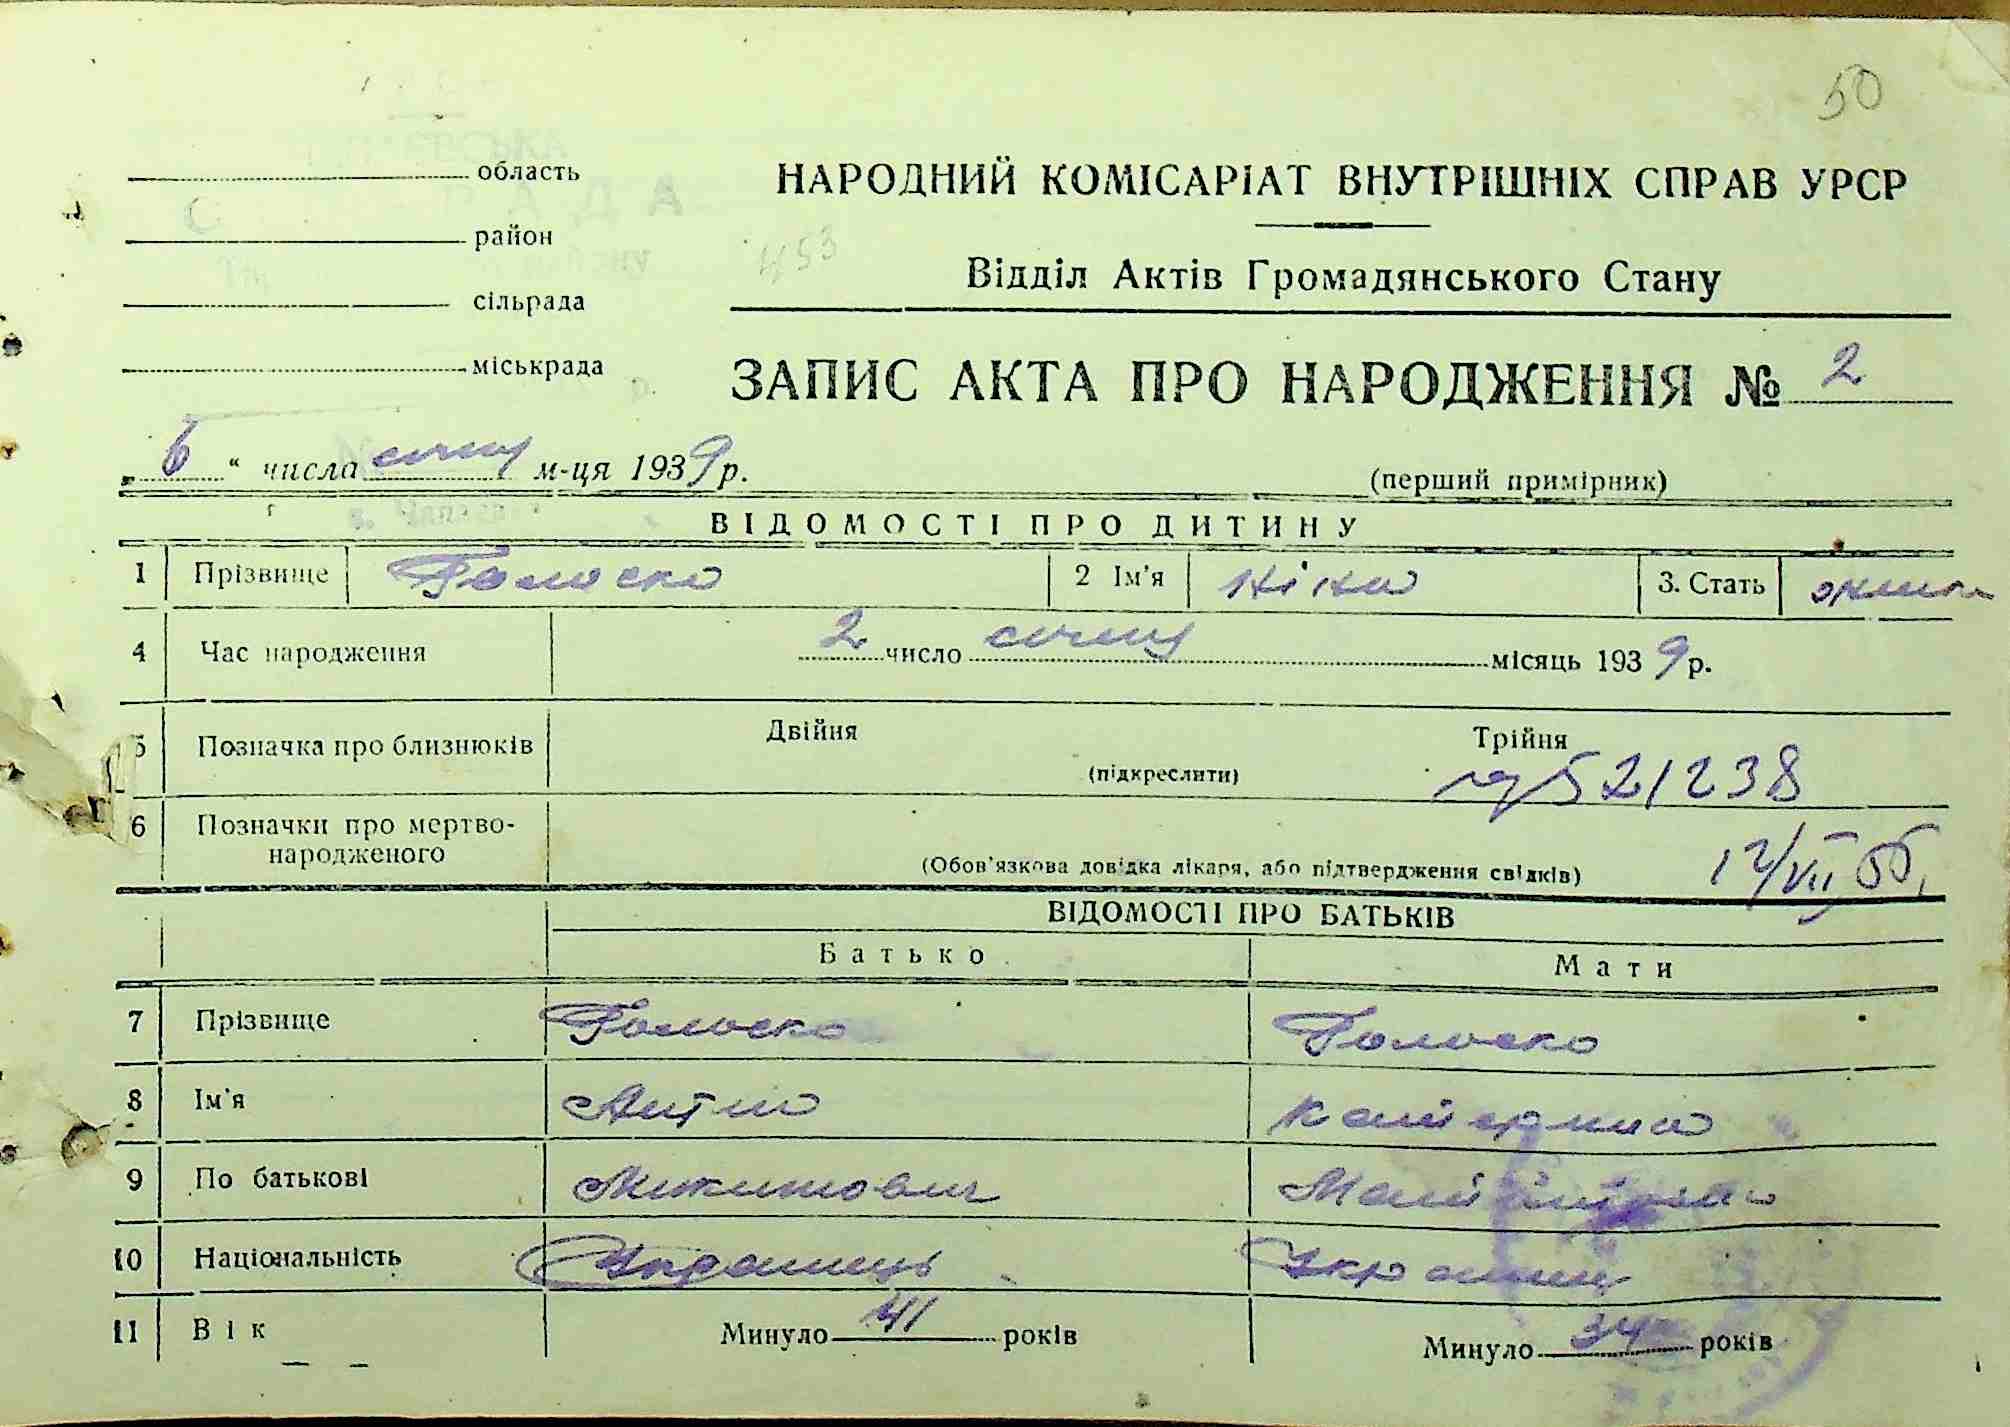 50
область
НАРОДНИЙ КОМІСАРІАТ ВНУТРІШНІХ СПРАВ УРСР
район
453
Відділ Актів Громадянського Стану
сільрада
міськрада
ЗАПИС АКТА ПРО НАРОДЖЕННЯ № 2
„ 6 “ числа січня м-ця 1939 р.
(перший примірник)
ВІДОМОСТІ ПРО ДИТИНУ
1 Прізвище Голоско 2 Ім'я Ніна 3. Стать жіноч
4 Час народження 2 число січня місяць 1939 р.
5 Позначка про близнюків Двійня Трійня
(підкреслити)
521238
6 Позначки про мертво-
народженого
(Обов'язкова довідка лікаря, або підтвердження свідків)
12/VII 55
ВІДОМОСТІ ПРО БАТЬКІВ
Батько Мати
7 Прізвище Голоско Голоско
8 Ім'я Антін Катерина
9 По батькові Микитович
10 Національність Украинець Украинка
11 Вік Минуло 41 років Минуло 34 років